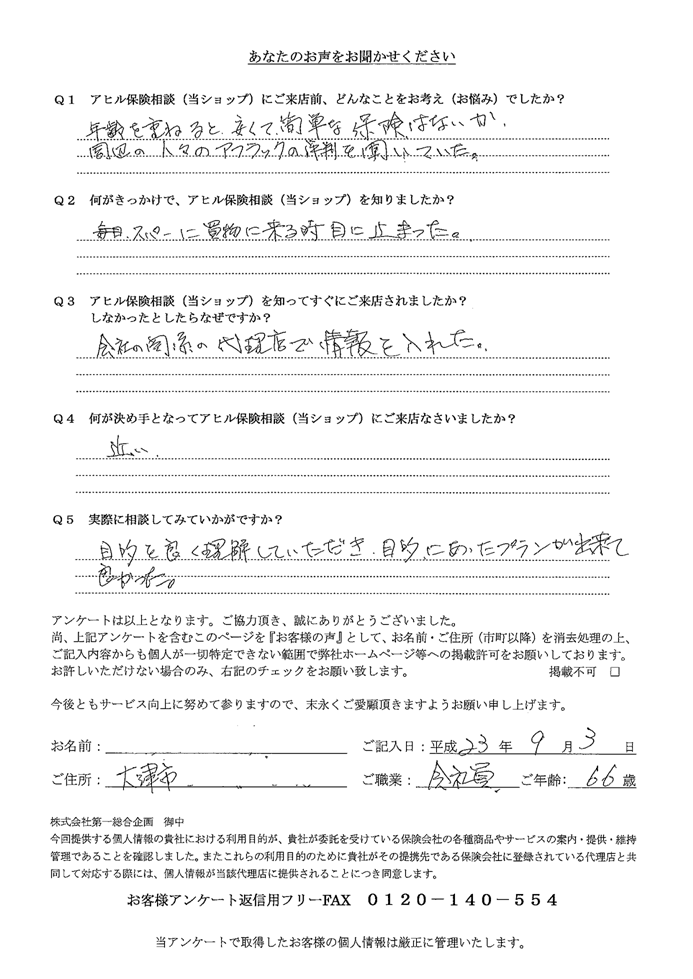 あなたのお声をお聞かせください
Q1 アヒル保険相談（当ショップ）にご来店前、どんなことをお考え（お悩み）でしたか？
年齢を重ねると、安くて簡単な保険はないか、
周辺の人々のアフラックの評判を聞いていた。
Q2 何がきっかけで、アヒル保険相談（当ショップ）を知りましたか？
毎日、スーパーに買物に来る時目に止まった。
Q3 アヒル保険相談（当ショップ）を知ってすぐにご来店されましたか？
しなかったとしたらなぜですか？
会社の関係の代理店で情報を入れた。
Q4 何が決め手となってアヒル保険相談（当ショップ）にご来店なさいましたか？
近い、
Q5 実際に相談してみていかがですか？
目的を良く理解していただき、目的にあったプランが出来て
良かった。
アンケートは以上となります。ご協力頂き、誠にありがとうございました。
尚、上記アンケートを含むこのページを『お客様の声』として、お名前・ご住所（市町以降）を消去処理の上、
ご記入内容からも個人が一切特定できない範囲で弊社ホームページ等への掲載許可をお願いしております。
お許しいただけない場合のみ、右記のチェックをお願い致します。 掲載不可 □
今後ともサービス向上に努めて参りますので、末永くご愛顧頂きますようお願い申し上げます。
お名前： ご記入日：平成 23 年 9 月 3 日
ご住所： 大津市 ご職業： 会社員 ご年齢： 66 歳
株式会社第一総合企画 御中
今回提供する個人情報の貴社における利用目的が、貴社が委託を受けている保険会社の各種商品やサービスの案内・提供・維持
管理であることを確認しました。またこれらの利用目的のために貴社がその提携先である保険会社に登録されている代理店と共
同して対応する際には、個人情報が当該代理店に提供されることにつき同意します。
お客様アンケート返信用フリーFAX 0120-140-554
当アンケートで取得したお客様の個人情報は厳正に管理いたします。